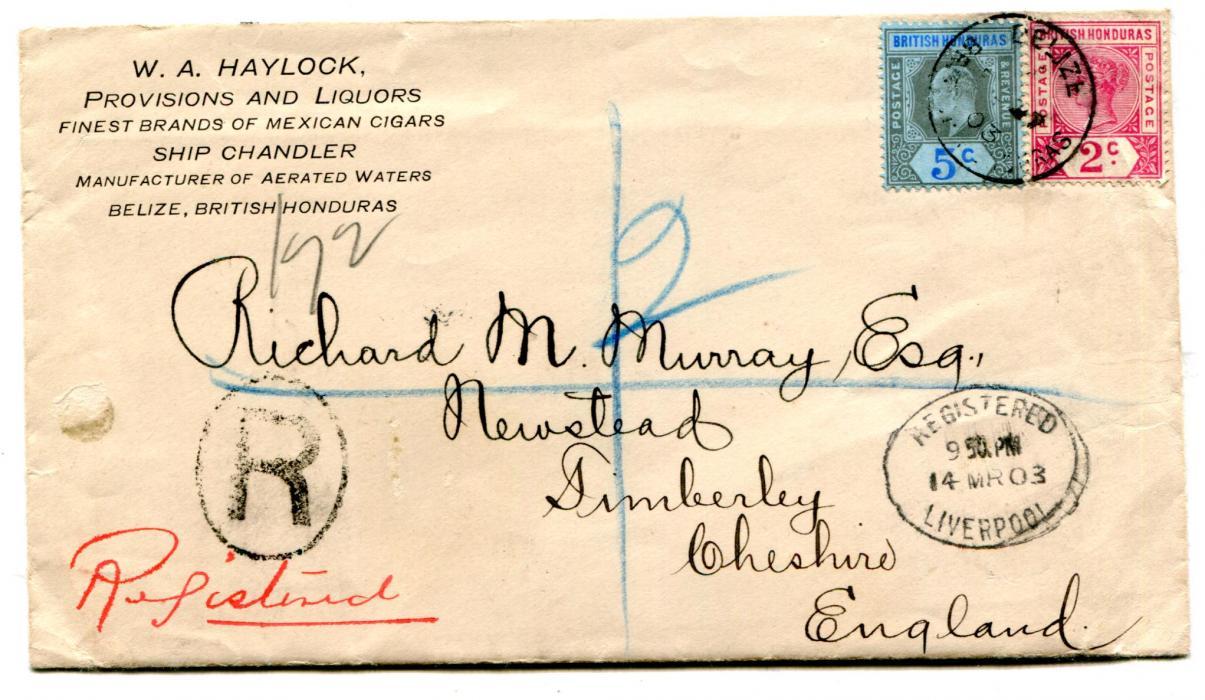 W. A. HAYLOCK,
PROVISIONS AND LIQUORS
FINEST BRANDS OF MEXICAN CIGARS
SHIP CHANDLER
MANUFACTURER OF AERATED WATERS
BELIZE, BRITISH HONDURAS
BRITISH HONDURAS
POSTAGE
& REVENUE
5c
BRITISH HONDURAS
POSTAGE
POSTAGE
2c.
BELIZE
03
Richard M. Murray, Esq.,
Newstead
Timberley
Cheshire
England.
R
Registered
REGISTERED
9 50.PM
14 MR 03
LIVERPOOL